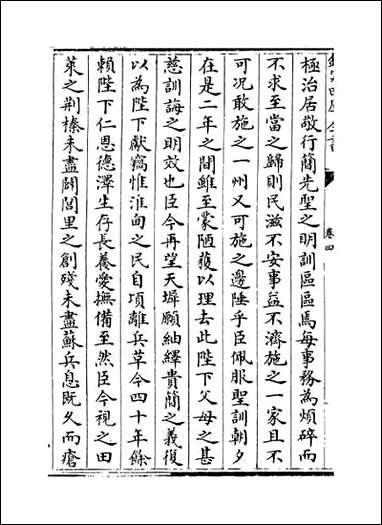 欽定四庫全書
卷四
極治居敬行簡先聖之明訓區區焉每事務為煩碎而
不求至當之歸則民滋不安事益不濟施之一家且不
可況敢施之一州又可施之邊陲乎臣佩服聖訓朝夕
在是二年之間雖至蒙陋獲以理去此陛下父母之甚
慈訓誨之明效也臣今再望天墀願紬繹貴簡之義復
以為陛下獻竊惟淮甸之民自頃離兵革今四十年餘
賴陛下仁恩德澤生存長養愛撫備至然臣今視之田
萊之荆榛未盡闢閭里之創殘未盡蘇兵息既久而瘡